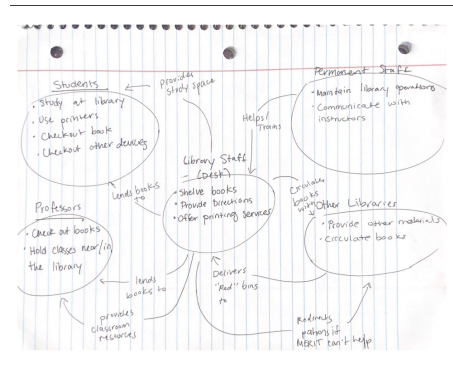 Students
• Study at library
• Use printers
• Checkout book
• Checkout other devices
provides
study space
Permanent Staff
• Maintain library operations
• Communicate with
instructors
Helps/
Trains
Library Staff
(Desk)
• Shelve books
• Provide Directions
• Offer printing services
Lends books
to
Circulate
books
with
Professors
• Check out books
• Hold classes near/in
the library
Other Libraries
• Provide other materials
• Circulate books
lends
books to
provides
classroom
resources
Delivers
"Red" bins
to
Redirects
patrons if
MERIT can't help